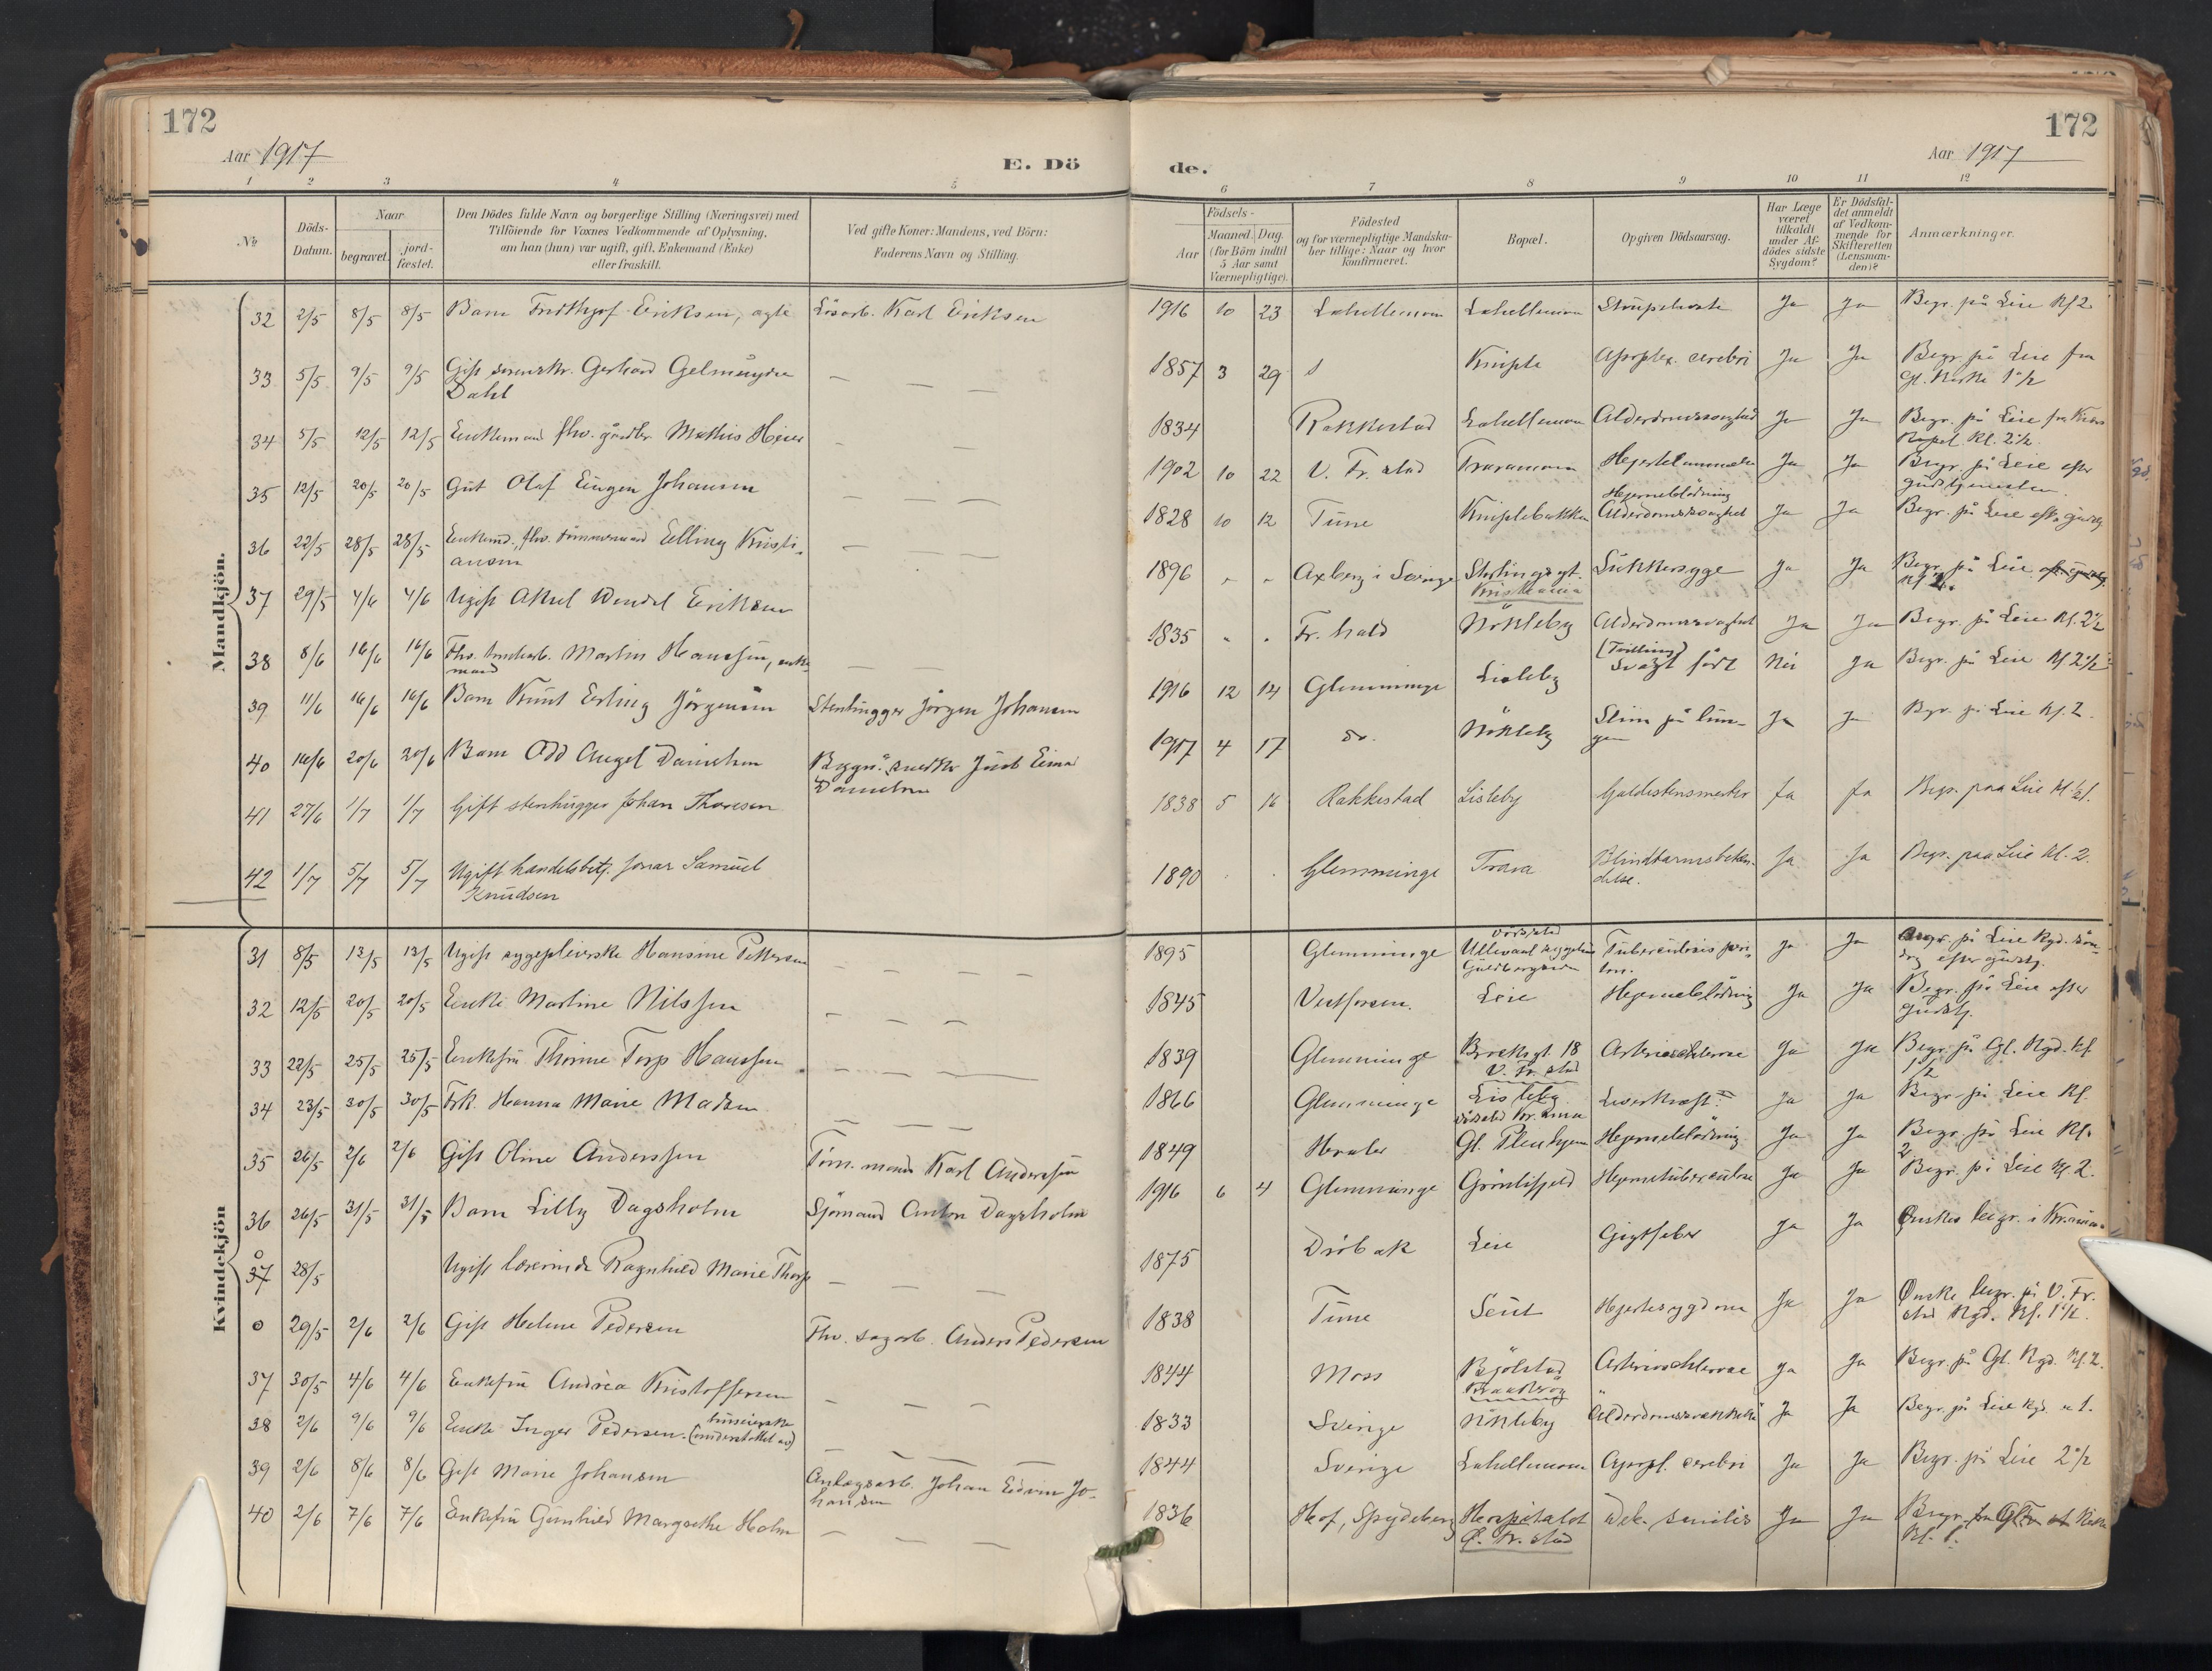 172
Aar 1917
E. Dö
1 2 3 4 5
№
Döds-
Datum.
Naar
begravet.
jord-
fæstet.
Den Dödes fulde Navn og borgerlige Stilling (Næringsvei) med
Tilföiende for Voxnes Vedkommende af Oplysning,
om han (hun) var ugift, gift, Enkemand (Enke)
eller fraskilt.
Ved gifte Koner: Mandens, ved Börn:
Faderens Navn og Stilling.
Mandkjön.
32 2/5 8/5 8/5 Barn Fridthjof Eriksen, ægte Lösarb. Karl Eriksen
33 5/5 9/5 9/5 Gift Gerhard
Dahl
34 5/5 12/5 12/5 Enkemand fhv. gårdbr Mathis Heier
35 12/5 20/5 20/5 Gut Olaf Eugen Johansen
36 22/5 28/5 28/5 Enkemd., fhv. tömmermand Elling Kristi-
ansen
37 29/5 4/6 4/6 Ugift Aksel Wendel Eriksen
38 8/6 16/6 16/6 Fhv. Martin Hanssen, enke-
mand
39 11/6 16/6 16/6 Barn Knut Erling Jörgensen Stenhugger Jörgen Johansen
40 16/6 20/6 20/6 Barn Odd Angel Danielsen Bygn. snedker Just Einar
Danielsen
41 27/6 1/7 1/7 Gift stenhugger Johan Thoresen
42 1/7 5/7 5/7 Ugift handelsbetj. Jonas Samuel
Knudsen
Kvindekjön
31 8/5 13/5 13/5 Ugift sygepleierske Hansine Pettersen
32 12/5 20/5 20/5 Enke Martine Nilssen
33 22/5 25/5 25/5 Enkefru Thorine Torp Hanssen
34 23/5 30/5 30/5 Frk. Hanna Marie Madsen
35 26/5 2/6 2/6 Gift Oline Anderssen Töm.mand Karl Anderssen
36 26/5 31/5 31/5 Barn Lilly Dagsholm Sjömand Anton Dagsholm
0
37 28/5 Ugift lærerinde Ragnhild Marie Thorp
0 29/5 2/6 2/6 Gift Helene Pedersen Fhv. sagarb. Anders Pedersen
37 30/5 4/6 4/6 Enkefru Andrea Kristoffersen
38 2/6 9/6 9/6 Enke Inger Pedersen. (huseierske
understöttet av)
39 2/6 8/6 8/6 Gift Marie Johansen Anlægsarb. Johan Edvin Jo-
hansen
40 2/6 7/6 7/6 Enkefru Gunhild Margrethe Holm
172
Aar 1917
de.
6 7 8 9 10 11 12
Födsels-
Aar
Maaned. Dag.
(for Börn indtil
5 Aar samt
Værnepligtige).
Födested
og for værnepligtige Mandska-
ber tillige: Naar og hvor
konfirmeret.
Bopæl.
Opgiven Dödsaarsag.
Har Læge
været
tilkaldt
under Af-
dödes sidste
Sygdom?
Er Dödsfal-
det anmeldt
af Vedkom-
mende for
Skifteretten
(Lensman-
den)?
Anmærkninger.
1916 10 23 Lahellemoen Lahellemoen Strupehoste Ja Ja Begr. på Leie Kl 2
1857 3 29 Kniple Apoplex. cerebri Ja Ja Begr. på Leie fra
Gl. Kirke 1 1/2
1834 Rakkestad Lahellemoen Alderdomssvaghed Ja Ja Begr. på Leie fra Kros
Kapel Kl. 2 1/2.
1902 10 22 V. Fr. stad Traramoen Hjertelammelse Ja Ja Begr. på Leie efter
gudstjenesten
1828 10 12 Tune Kniplebakken Hjerneblödning
Alderdomssvaghet Ja Ja Begr. på Leie eft. gudstj
1896 " " Axberg i Sverige Stortingsgt.
Kristiania Sukkersyge Ja Ja Begr. på Leie eft. gudstj.
Kl 2.
1835 " " Fr. hald Nökleby Alderdomssvaghet Ja Ja Begr. på Leie Kl. 2 1/2
1916 12 14 Glemminge Lisleby (Tvilling)
Svagt födt Nei Ja Begr. på Leie Kl 2 1/2
1917 4 17 do. Nökleby Slim på lun-
gen Ja Ja Begr. på Leie Kl. 2.
1838 5 16 Rakkestad Lisleby Galdestensmerter Ja Ja Begr. paa Leie kl. 1/2 1.
1890 Glemminge Trara Blindtarmsbeten-
delse. Ja Ja Begr. paa Leie kl. 2.
1895 Glemminge dödssted
Ullevaal sygehus
Guldbergsiden Tuberculosis peri-
ton. Ja Ja Begr på Leie Kgd. sön-
dag efter gudstj.
1845 Vestfossen. Leie Hjerneblödning Ja Ja Begr. på Leie efter
gudstj.
1839 Glemminge Brocksgt. 18
V. Fr. stad Arteriosclerose Ja Ja Begr på Gl. Kgd. kl.
1 1/2
1866 Glemminge Lisleby
dödssted Kr.ania Leverkræft. Ja Ja Begr på Leie Kl.
2
1849 Hvaler Gl. Pleiehjem Hjerneblödning Ja Ja Begr på Leie Kl.
1916 6 4 Glemminge Görnlifjeld Hjernetuberculose Ja Ja Begr. på Leie Kl. 2.
1875 Dröbak Leie Gigtfeber Ja Ja Önskes begr. i Kr.ania.
1838 Tune Seut Hjertesygdom Ja Ja Önske begr. på V. Fr.
stad Kgd. Kl. 1 1/2.
1844 Moss Bjölstad
Kraakeröy Arteriosclerose Ja Ja Begr. på Gl. Kgd. Kl. 2.
1833 Sverige Nökleby Alderdomssvakhet Ja Ja Begr. på Leie Kgd. kl 1.
1844 Sverige Lahellemoen Apopl. cerebri Ja Ja Begr. på Leie 2 1/2
1836 Hof, Spydeberg Hospitalet
Ø. Fr. stad Deb. senilis Ja Ja Begr. fra Gl. Kirke
Kl. 1.